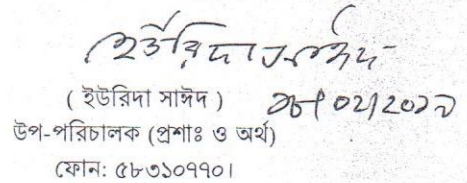 ইউরিদা সাঈদ
( ইউরিদা সাঈদ )
২৮/০২/২০১৯
উপ-পরিচালক (প্রশাঃ ও অর্থ)
ফোন: ৫৮৩১০৭৭০।